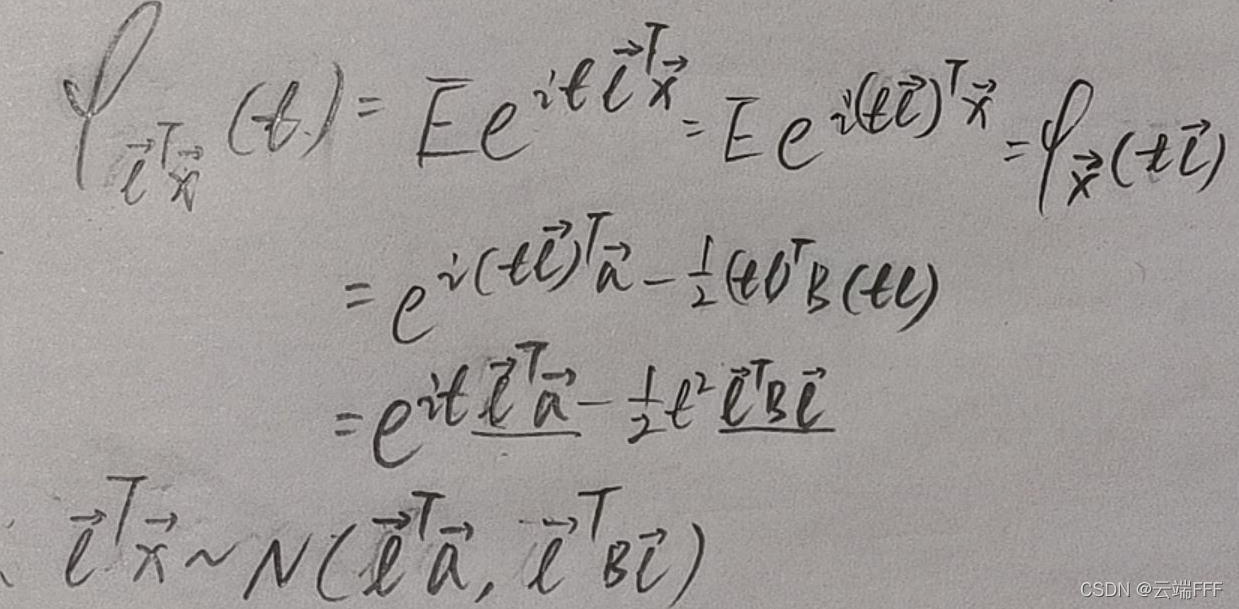 φ_{\vec{l}^T\vec{x}}(t) = E e^{it\vec{l}^T\vec{x}} = E e^{i(t\vec{l})^T\vec{x}} = φ_{\vec{x}}(t\vec{l})
= e^{i(t\vec{l})^T\vec{a} - \frac{1}{2}(tl)^T B(tl)}
= e^{it\underline{\vec{l}^T\vec{a}} - \frac{1}{2}t^2\underline{\vec{l}^T B\vec{l}}}
\vec{l}^T\vec{x} ~ N(\vec{l}^T\vec{a}, \vec{l}^T B\vec{l})
CSDN @云端FFF